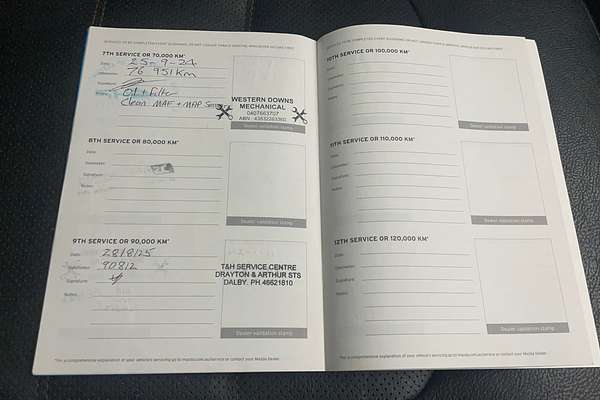 7TH SERVICE OR 70,000 KM*
Date: 25-9-24
Odometer: 76 951km
Signature:
Notes: Oil + Filter
Clean MAF + MAP Sensor
WESTERN DOWNS
MECHANICAL
0407663707
Dealer validation stamp
8TH SERVICE OR 80,000 KM*
Date:
Odometer:
Signature:
Notes:
Dealer validation stamp
9TH SERVICE OR 90,000 KM*
Date: 28/8/25
Odometer: 90812
Signature:
Notes:
T&H SERVICE CENTRE
DRAYTON & ARTHUR STS
DALBY. PH:46621810
Dealer validation stamp
*For a comprehensive explanation of your vehicle's servicing go to mazda.com.au/service or contact your Mazda Dealer.
10TH SERVICE OR 100,000 KM*
Date:
Odometer:
Signature:
Notes:
Dealer validation stamp
11TH SERVICE OR 110,000 KM*
Date:
Odometer:
Signature:
Notes:
Dealer validation stamp
12TH SERVICE OR 120,000 KM*
Date:
Odometer:
Signature:
Notes:
Dealer validation stamp
*For a comprehensive explanation of your vehicle's servicing go to mazda.com.au/service or contact your Mazda Dealer.